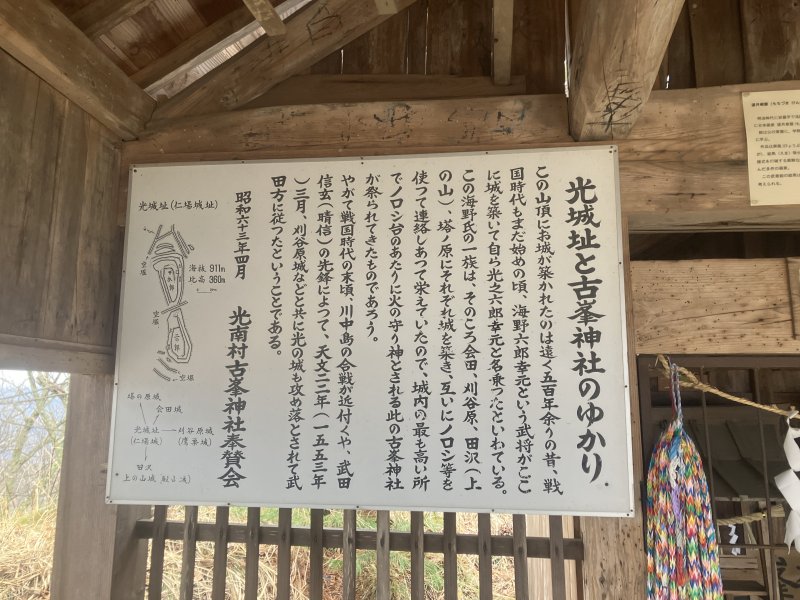 光城址と古峯神社のゆかり
この山頂にお城が築かれたのは遠く五百年余りの昔、戦
国時代もまだ始めの頃、海野六郎幸元という武将がここ
に城を築いて自ら光之六郎幸元と名乗ったといわれている。
この海野氏の一族は、そのころ会田、刈谷原、田沢（上
の山）、塔ノ原にそれぞれ城を築き、互いにノロシ等を
使つて連絡しあつて栄えていたので、城内の最も高い所
でノロシ台のあたりに火の守り神とされる此の古峯神社
が祭られてきたものであろう。
やがて戦国時代の末頃、川中島の合戦が近付くや、武田
信玄（晴信）の先鋒によつて、天文二二年（一五五三年
）三月、刈谷原城などと共に光の城も攻め落とされて武
田方に従つたということである。
昭和六十三年四月
光南村古峯神社奉賛会
光城址(仁場城址)
海抜 911m
比高 360m
空堀
空堀
空堀
塔の原城
会田城
光城址
(仁場城)
刈谷原城
(鷹巣城)
田沢
上の山城